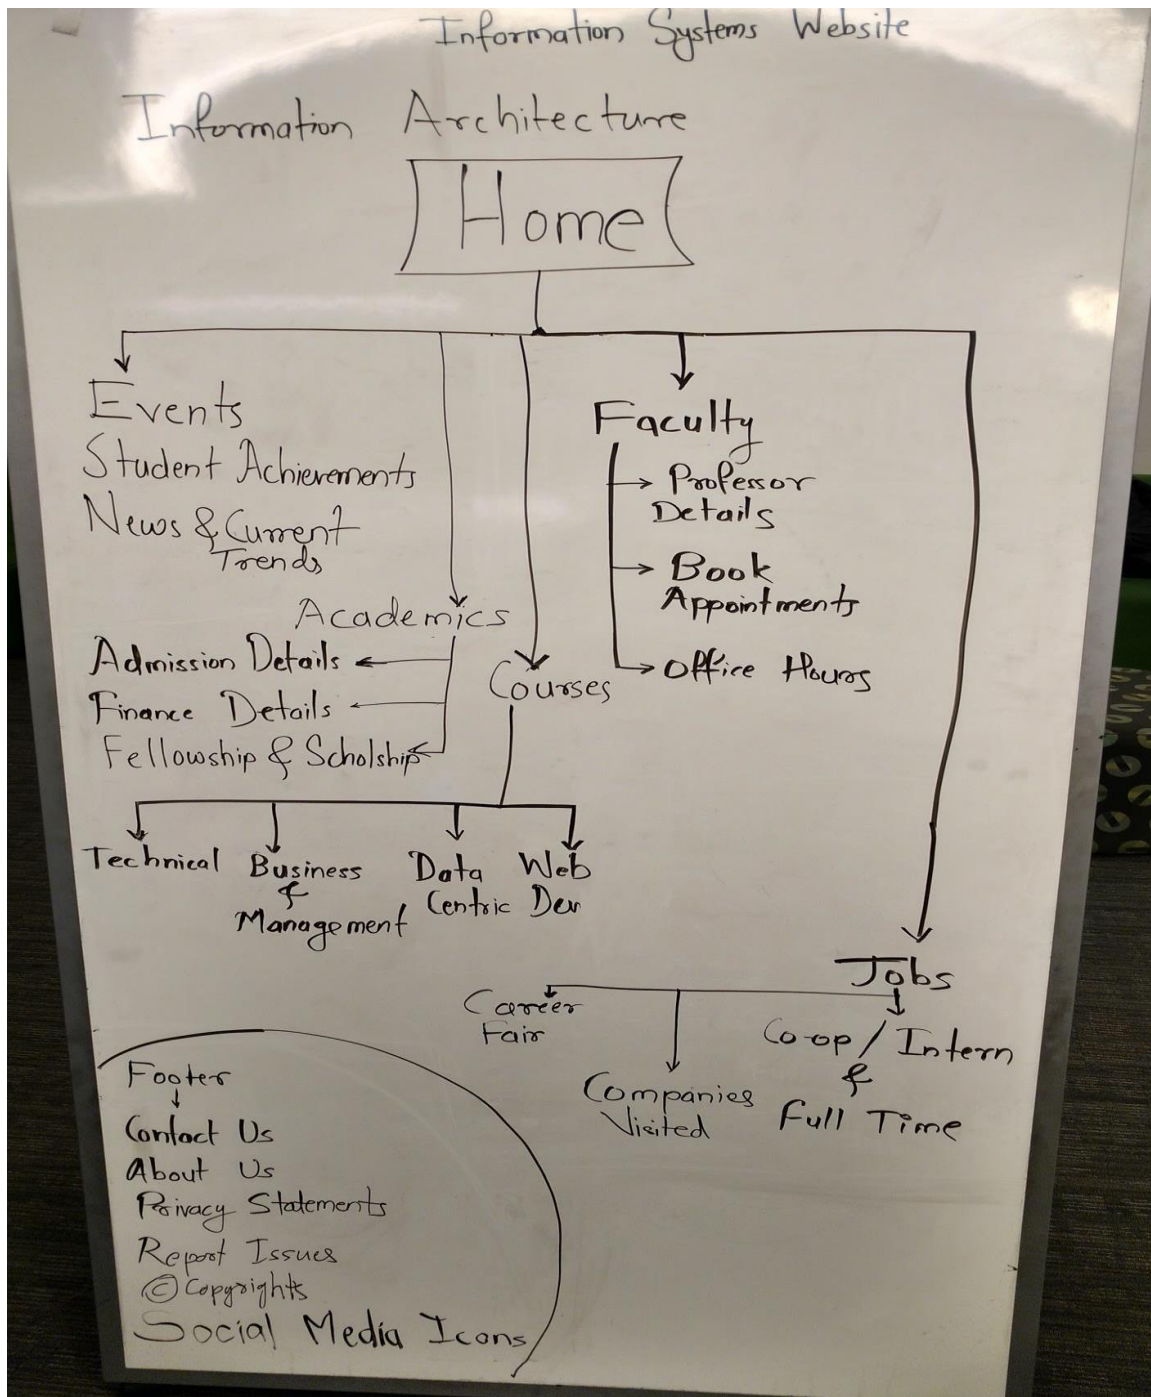 Information Systems Website
Information Architecture
Home
Events
Student Achievements
News & Current
Trends
Academics
Admission Details
Finance Details
Fellowship & Scholship
Courses
Technical
Business
&
Management
Data
Centric
Web
Dev
Faculty
Professor
Details
Book
Appointments
Office Hours
Jobs
Career
Fair
Companies
Visited
Co-op / Intern
&
Full Time
Footer
Contact Us
About Us
Privacy Statements
Report Issues
© Copyrights
Social Media Icons